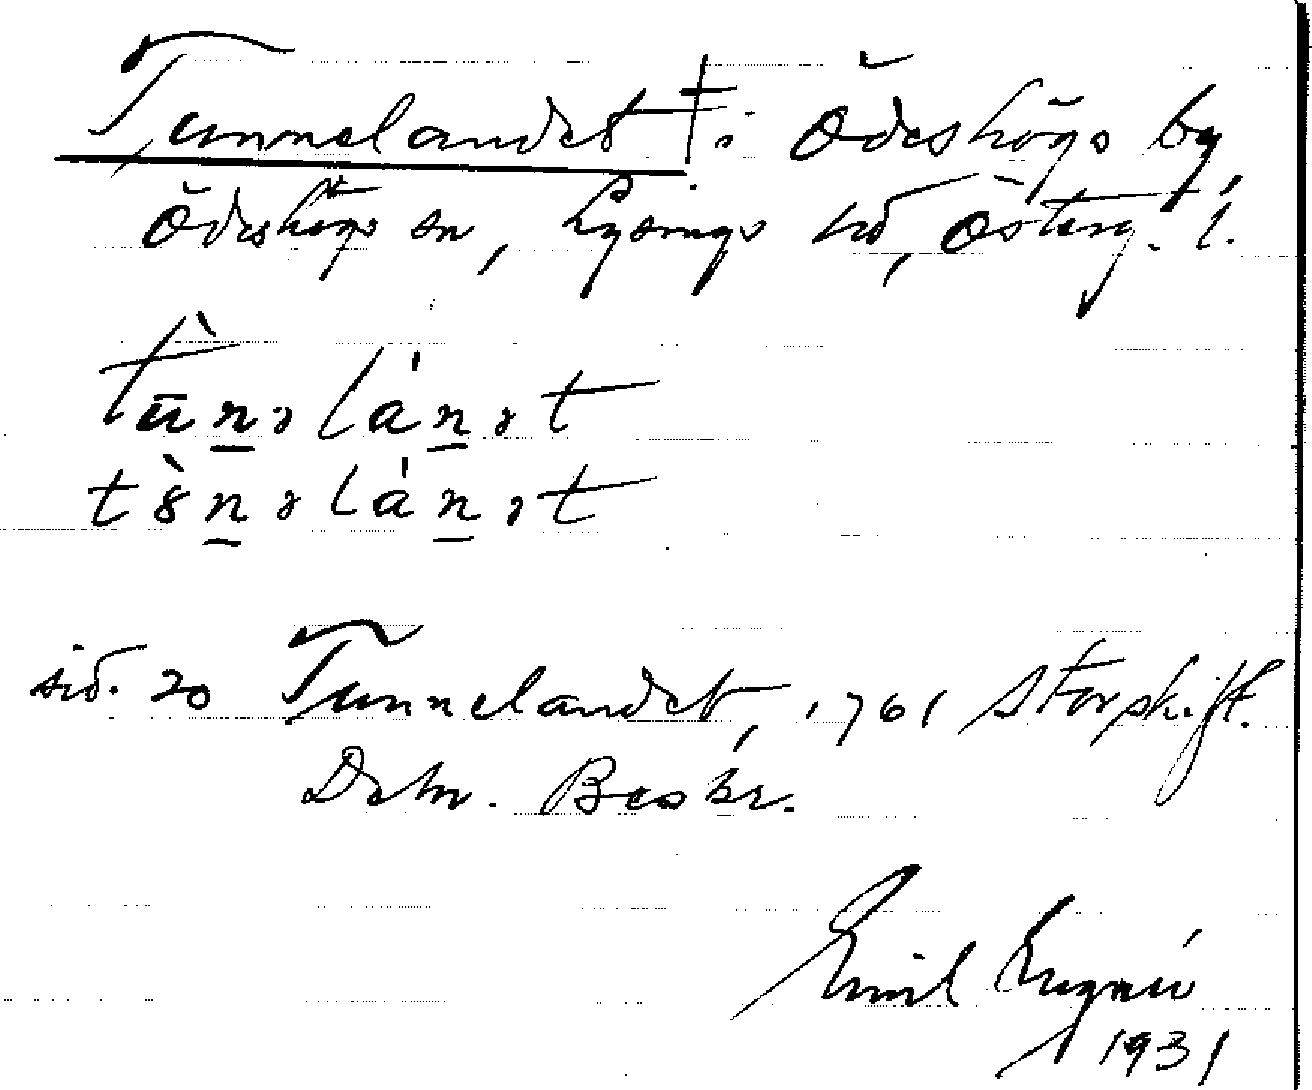 Tunnelandet † i Ödeshögs by,
Ödeshögs sn, Lysings hd, Österg. l.
tùnəlánət
tònəlánət
sid. 20 Tunnelandet, 1761 Storskift.
Beskr.
Emil
1931